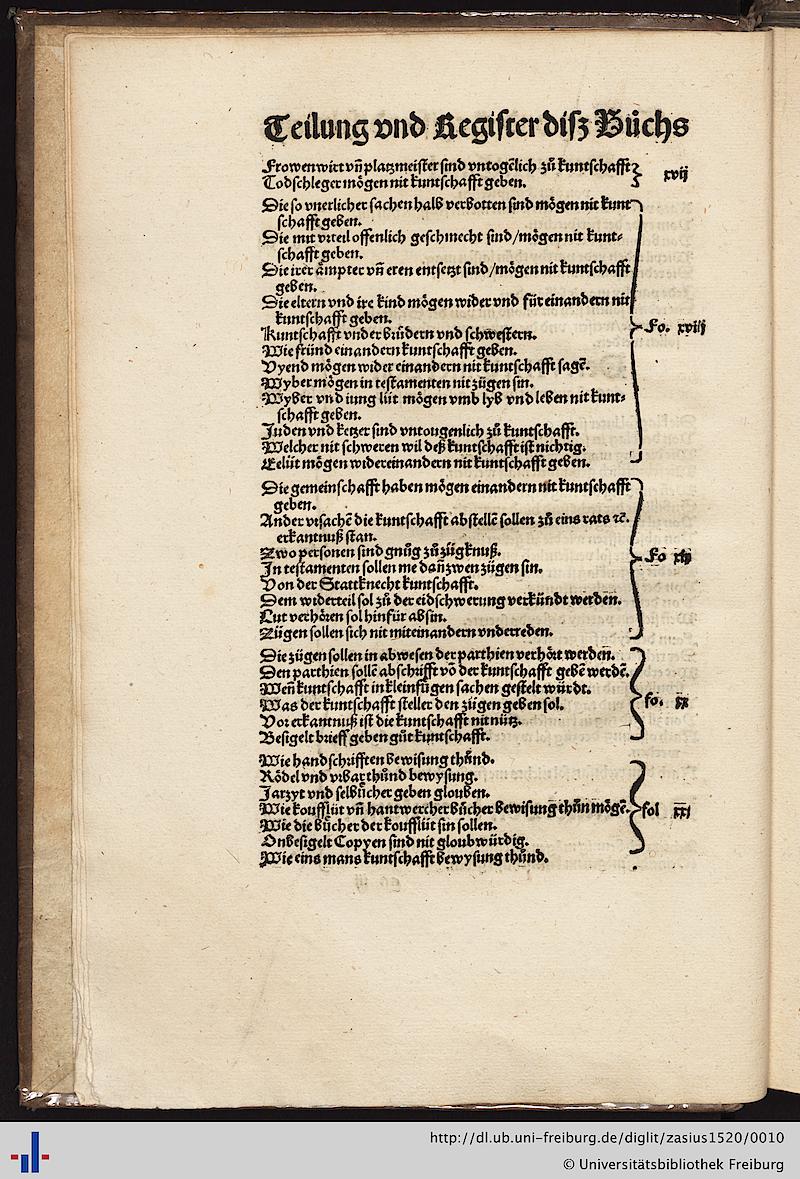 Teilung vnd Register disz Bůchs
Frowenwirt vñ platzmeister sind vntogēlich zů kuntschafft
Todschleger mögen nit kuntschafft geben.
xvij
Die so vnerlicher sachen halb verbotten sind mögen nit kunt
schafft geben.
Die mit vrteil offenlich geschmecht sind/mögen nit kunt⸗
schafft geben.
Die irer ämpter vñ eren entsetzt sind/mögen nit kuntschafft
geben.
Die eltern vnd ire kind mögen wider vnd für einandern nit
kuntschafft geben.
Kuntschafft vnder brüdern vnd schwestern.
Fo. xviij
Wie fründ einandern kuntschafft geben.
Vyend mögen wider einandern nit kuntschafft sagē.
Wyber mögen in testamenten nit zügen sin.
Wyber vnd iung lüt mögen vmb lyb vnd leben nit kunt⸗
schafft geben.
Juden vnd ketzer sind vntougenlich zů kuntschafft.
Welcher nit schweren wil deß kuntschafft ist nichtig.
Eelüt mögen widereinandern nit kuntschafft geben.
Die gemeinschafft haben mögen einandern nit kuntschafft
geben.
Ander vrsachē die kuntschafft abstellē sollen zů eins rats ꝛc.
erkantnuß stan.
Zwo personen sind gnůg zů zügknuß.
Fo xix
In testamenten sollen me dañ zwen zügen sin.
Von der Stattknecht kuntschafft.
Dem widerteil sol zů der eidschwerung verkündt werden.
Lut verhören sol hinfür absin.
Zügen sollen sich nit miteinandern vnderreden.
Die zügen sollen in abwesen der parthien verhört werden.
Den parthien sollē abschrifft vō der kuntschafft gebē werdē.
Weñ kuntschafft in kleinfügen sachen gestelt würdt.
Was der kuntschafft steller den zügen geben sol.
fo. xx
Vor erkantnuß ist die kuntschafft nit nütz.
Besigelt brieff geben gůt kuntschafft.
Wie handschrifften bewisung thůnd.
Rödel vnd vrbar thůnd bewysung.
Jarzyt vnd selbücher geben glouben.
Wie koufflüt vñ hantwercher bücher bewisung thůn mögē.
fol xxi
Wie die bücher der koufflüt sin sollen.
Onbesigelt Copyen sind nit gloubwürdig.
Wie eins mans kuntschafft bewysung thůnd.
http://dl.ub.uni-freiburg.de/diglit/zasius1520/0010
© Universitätsbibliothek Freiburg